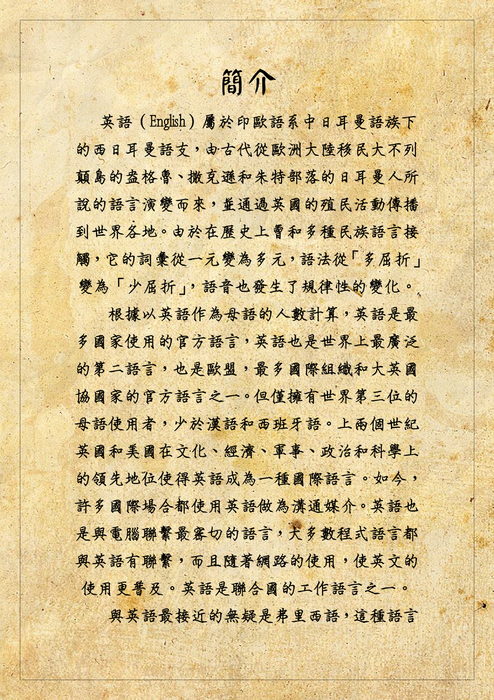 簡介
英語（English）屬於印歐語系中日耳曼語族下
的西日耳曼語支，由古代從歐洲大陸移民大不列
顛島的盎格魯、撒克遜和朱特部落的日耳曼人所
說的語言演變而來，並通過英國的殖民活動傳播
到世界各地。由於在歷史上曾和多種民族語言接
觸，它的詞彙從一元變為多元，語法從「多屈折」
變為「少屈折」，語音也發生了規律性的變化。
根據以英語作為母語的人數計算，英語是最
多國家使用的官方語言，英語也是世界上最廣泛
的第二語言，也是歐盟，最多國際組織和大英國
協國家的官方語言之一。但僅擁有世界第三位的
母語使用者，少於漢語和西班牙語。上兩個世紀
英國和美國在文化、經濟、軍事、政治和科學上
的領先地位使得英語成為一種國際語言。如今，
許多國際場合都使用英語做為溝通媒介。英語也
是與電腦聯繫最密切的語言，大多數程式語言都
與英語有聯繫，而且隨著網路的使用，使英文的
使用更普及。英語是聯合國的工作語言之一。
與英語最接近的無疑是弗里西語，這種語言